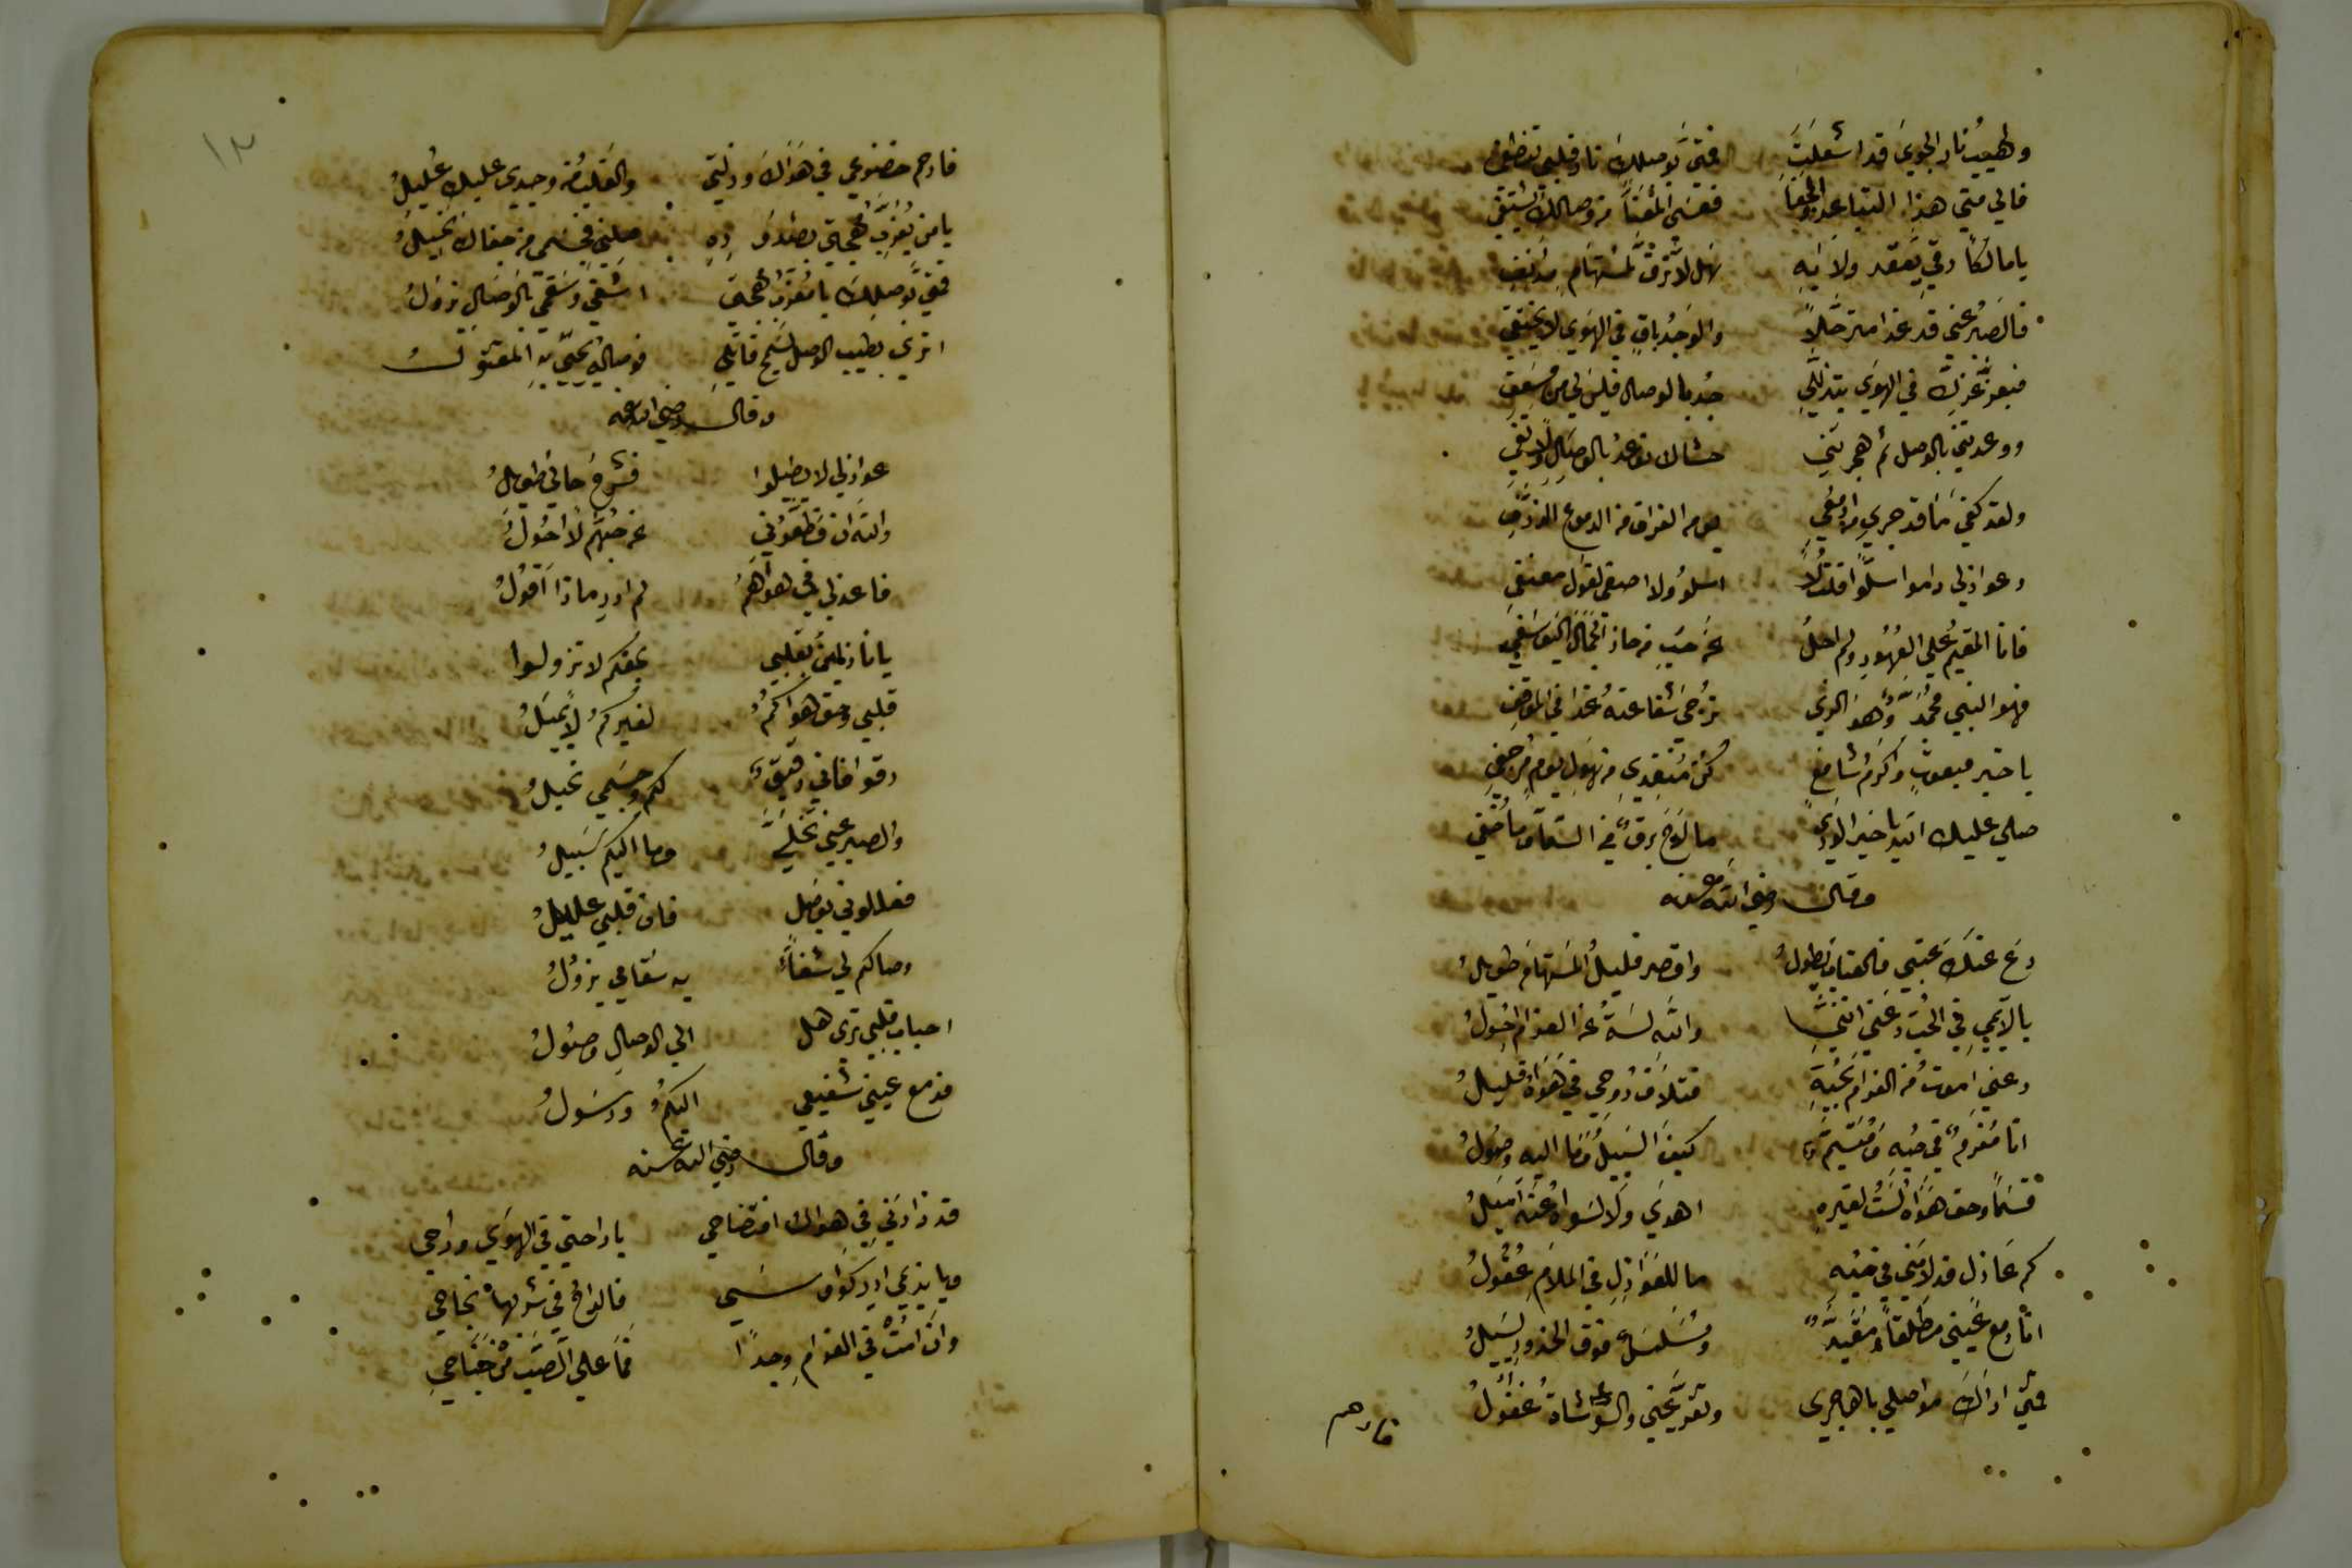 ولهيب نار الجوي قد اشعلت فمتى بوصلك نار قلبي تنطفي
فالي متي هذا التباعد والجفا فعسى المعنا من وصالك يشتفي
يا مالكا رقي بعقد ولايه هل لا ترق لمستهام مدنف
فالصبر عني قد غدا مترحلا والوجد باق في الهوي لا يختفي
فبعز عزك في الهوي بتذللي جد بالوصال فليس لي من مسعف
ووعدتني بالوصل ثم هجرتني حشاك توعد بالوصال ولا تفي
ولقد كفي ما قد جري من ادمعي يوم الفراق من الدموع الذرف
وعواذلي راموا سلوا قلت لا اسلو ولا اصغى لقول معنفي
فانا المقيم علي العهود ولم احل عن حب من حاز الجمال اليوسفي
فهو النبي محمد وهو الذي نرجي شفاعته غدا في الموقف
يا خير مبعوث واكرم شافع كن منقذي من هول يوم مرجف
صلي عليك الله يا خير الوري ما لاح برق في السماء وما خفي
وقال رضي الله عنه
دع عنك عتبي فالعتاب يطول واقصر فليل المستهام طويل
يا لايمي في الحب دعني انني والله لست عن الغرام احول
دعني اموت من الغرام بحبه فتلاف روحي في هواه قليل
انا مغرم في حبه ومتيم كيف السبيل وما اليه وصول
قسما وحق هواه لست لغيره اهوي ولا لسواه عنه اميل
كم عاذل قد لامني في حبه ما للعواذل في الملام عقول
انا دمع عيني مطلقا ومقيد ومسلسل فوق الخدود يسيل
فمتي اراك مواصلي يا هاجري وتقر عيني والوشاة غفول
فارحم
١٢
فارحم خضوعي في هواك وذلتي والقلب من وجدي عليك عليل
يا من يعذب مهجتي بصدوده صلني فجسمي من جفاك نحيل
فمتى بوصلك يا معذب مهجتي اشفي وسقمي بالوصال يزول
اتري بطيب الوصل يسمح قاتلي فوصاله يحيى به المقتول
وقال رضي الله عنه
عواذلي لا تطيلوا فشرح حالي طويل
والله ان قطعوني عن حبهم لا احول
فاعذلي في هواهم لم ادر ماذا اقول
يا نازلين بقلبي بحقكم لا تزولوا
قلبي وحق هواكم لغيركم لا يميل
رقوا فاني رقيق لكم وجسمي نحيل
والصبر عني تخلي وما اليكم سبيل
فعللوني بوصل فان قلبي عليل
وصالكم لي شفاء به سقامي يزول
احباب قلبي تري هل الي الوصال وصول
فدمع عيني شفيعي اليكم ورسول
وقال رضي الله عنه
قد زادني في هواك افتضاحي يا راحتي في الهوي وراحي
ويا نديمي ادر كوس فالراح في شربها نجاحي
وان امت في الغرام وجدا فما علي الصب من جناحي